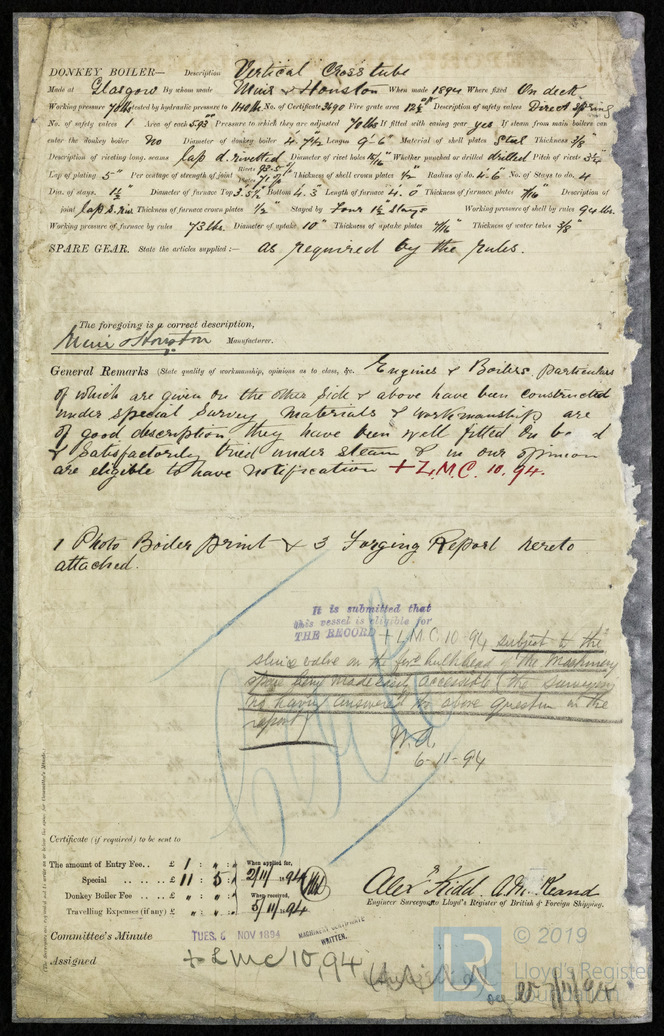 DONKEY BOILER— Description Vertical Cross tube
Made at Glasgow By whom made Muir & Houston When made 1894 Where fixed On deck
Working pressure 70lbs tested by hydraulic pressure to 140lbs No. of Certificate 3490 Fire grate area Description of safety valves Direct spring
No. of safety valves 1 Area of each 5.93 Pressure to which they are adjusted 70lbs If fitted with easing gear yes If steam from main boilers can
enter the donkey boiler no Diameter of donkey boiler 4. 7½ Length 9'-6" Material of shell plates Steel Thickness 3/8"
Description of riveting long. seams lap d. rivetted Diameter of rivet holes 15/16" Whether punched or drilled drilled Pitch of rivets
Lap of plating 5" Per centage of strength of joint Rivets Thickness of shell crown plates 1/2 Radius of do. 4-6" No. of Stays to do. 4
Dia. of stays. 1½" Diameter of furnace Top 3.5½ Bottom 4.3 Length of furnace 4.0" Thickness of furnace plates 7/16" Description of
joint lap s. riv Thickness of furnace crown plates 1/2" Stayed by Four 1½ Stays Working pressure of shell by rules 94 lbs.
Working pressure of furnace by rules 73 lbs. Diameter of uptake 10" Thickness of uptake plates 7/16" Thickness of water tubes 3/8"
SPARE GEAR. State the articles supplied:— as required by the rules.
The foregoing is a correct description,
Muir & Houston Manufacturer.
General Remarks (State quality of workmanship, opinions as to class, &c. Engines & Boilers, particulars
of which are given on the other side & above have been constructed
under special survey, materials & workmanship are
of good description they have been well fitted on bo d
& Satisfactorily tried under steam & in our opinion
are eligible to have notification + L.M.C. 10.94.
1 Photo Boiler print & 3 Forging Report hereto
attached.
It is submitted that
this vessel is eligible for
THE RECORD + L.M.C. 10.94 subject to the
sluice valve on the bulkhead of the Machinery
space being made easily accessible (the Surveyors
having answered the above question in the
report)
6-11-94
Certificate (if required) to be sent to
The amount of Entry Fee.. £ 1 : " : " When applied for,
Special .. .. .. £ 11 : 5 : " 2/11/1894
Donkey Boiler Fee .. £ " : " : " When received,
Travelling Expenses (if any) £ " : " : " 5/11/94
Alex Kidd.
Engineer Surveyors to Lloyd's Register of British & Foreign Shipping.
Committee's Minute TUES. 6 NOV 1894
MACHINERY CERTIFICATE
WRITTEN.
Assigned + LMC 10,94
© 2019
Lloyd's Register
Foundation